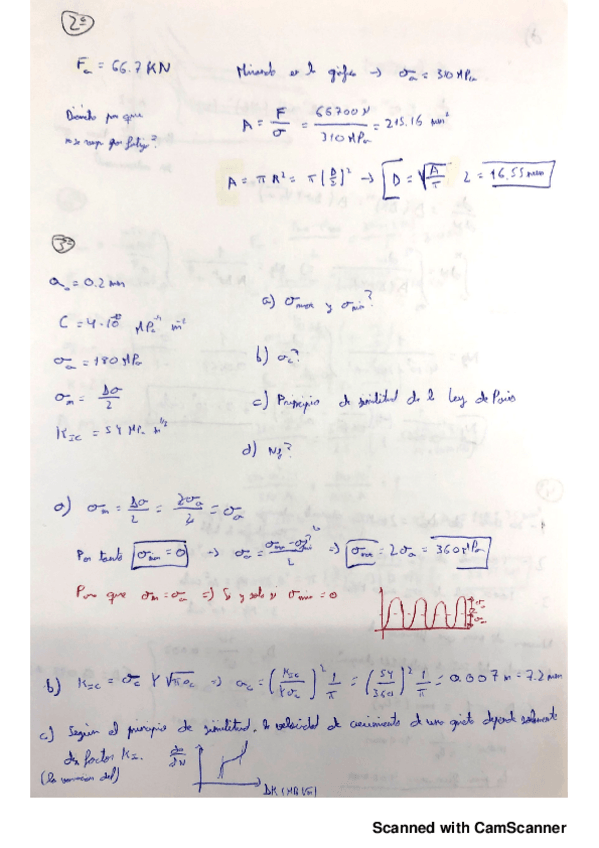 2º
Fa = 66.7 KN    Mirando en la gráfica → σa = 310 MPa
Diámetro para que
no se rompa por fatiga?
A = F/σ = 66700 N / 310 MPa = 215.16 mm²
A = πR² = π(D/2)² → D = √(A/π) 2 = 16.55 mm
3º
a₀ = 0.2 mm
a) σmax y σmin?
σa = 180 MPa
b) ac?
σm = Δσ/2
c) Principio de similitud de la Ley de Paris
KIC = 54 MPa m^1/2
d) Nf?
a) σm = Δσ/2 = 2σa/2 = σa
Por tanto σmin = 0 → σa = (σmax - σmin)/2 ⇒ σmax = 2σa = 360 MPa
Para que σm = σa ⇒ Si y solo si σmin = 0
b) KIC = σc Y √πac ⇒ ac = (KIC/Yσc)² 1/π = (54/360)² 1/π = 0.007 m = 7.2 mm
c) Según el principio de similitud, la velocidad de crecimiento de una grieta depende solamente
del factor KI. da/dN
(la variacion del)
ΔK (MPa√m)
Scanned with CamScanner